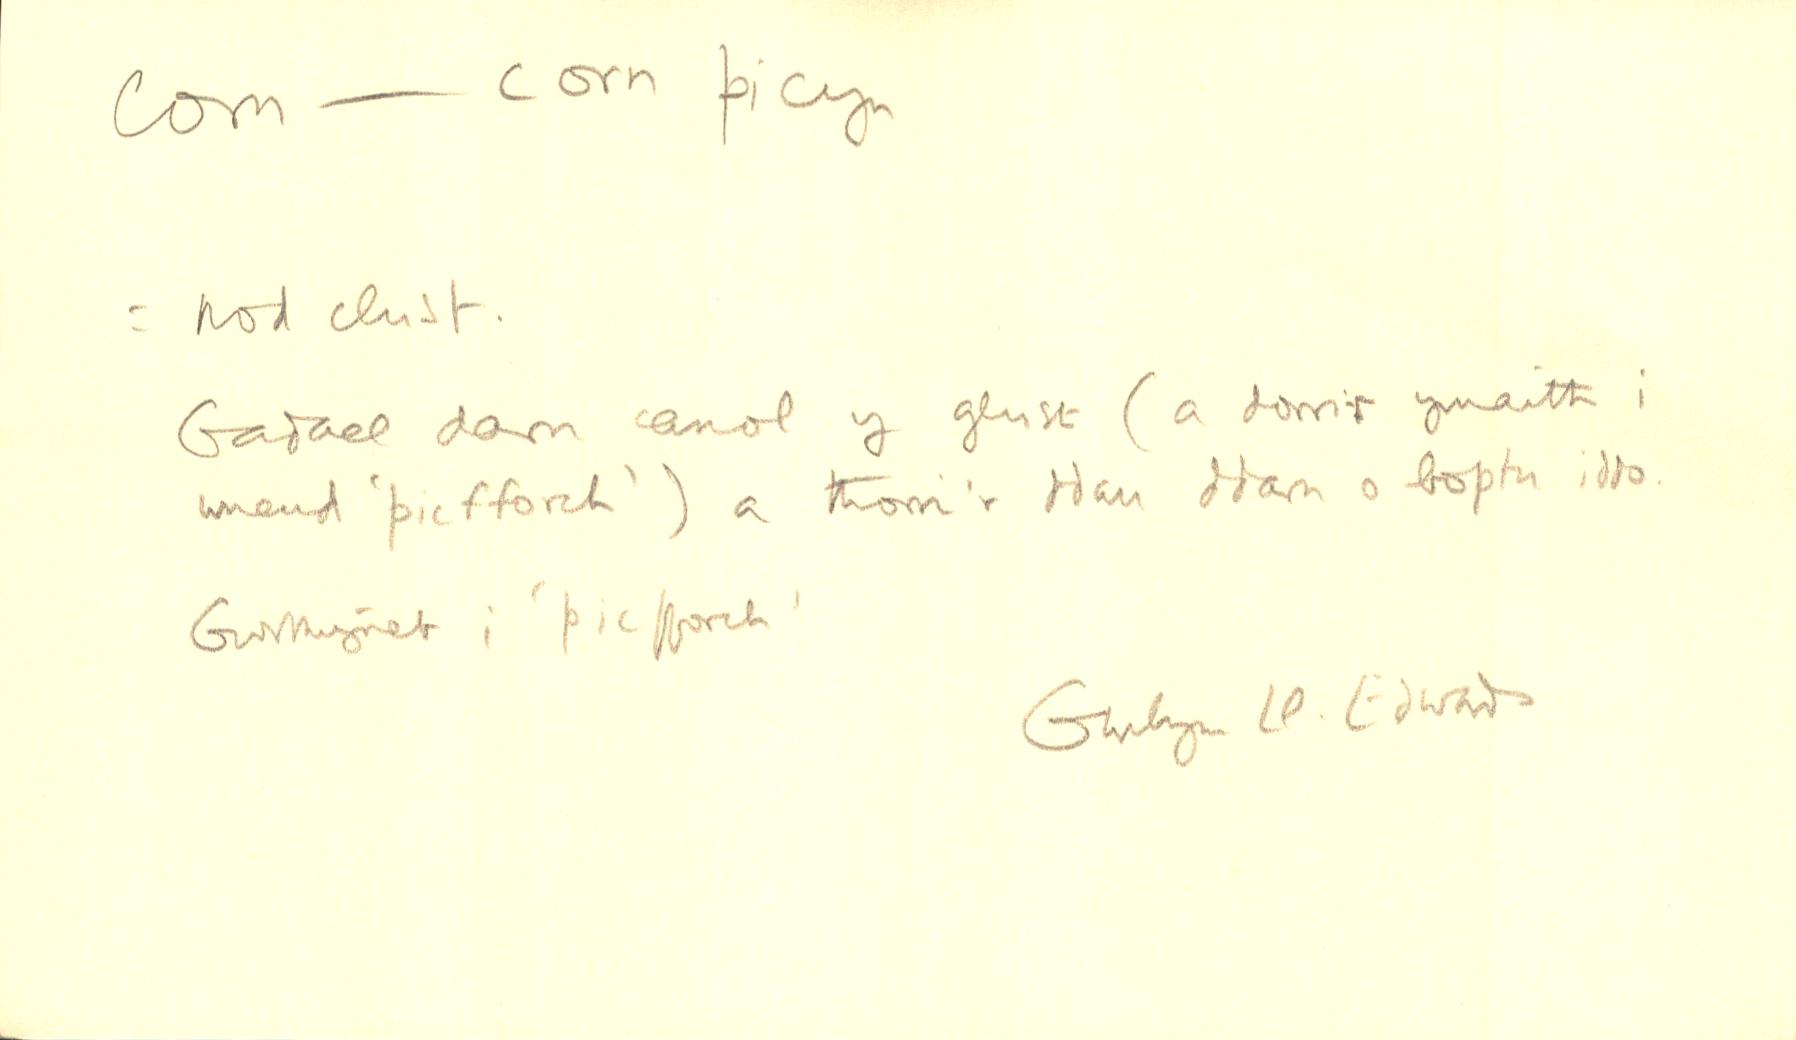 Corn — corn picyn
= nod clust.
Gadael darn canol y glust (a dorrir ymaith i
wneud 'picfforch') a thorri'r ddau ddarn o boptu iddo.
Gwrthwyneb i 'picfforch'
Gwilym Ll. Edwards